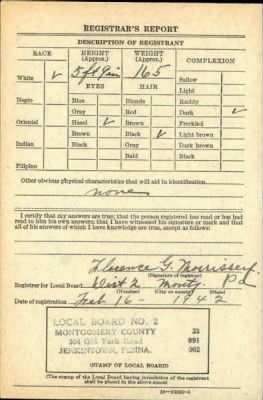 REGISTRAR'S REPORT
DESCRIPTION OF REGISTRANT
RACE HEIGHT (Approx.) WEIGHT (Approx.) COMPLEXION
White ✓ 5 ft 9 in 165 Sallow
EYES HAIR Light
Negro Blue Blonde Ruddy
Gray Red Dark ✓
Oriental Hazel ✓ Brown Freckled
Brown Black ✓ Light brown
Indian Black Gray Dark brown
Bald Black
Filipino
Other obvious physical characteristics that will aid in identification
none
I certify that my answers are true; that the person registered has read or has had
read to him his own answers; that I have witnessed his signature or mark and that
all of his answers of which I have knowledge are true, except as follows:
Florence G. Morrissey
(Signature of registrar)
Registrar for Local Board Dist 2 Montg. Pa
(Number) (City or county) (State)
Date of registration Feb 16 - 1942
LOCAL BOARD NO. 2
MONTGOMERY COUNTY 32
Old York Road 091
JENKINTOWN, PENNA. 002
(STAMP OF LOCAL BOARD)
(The stamp of the Local Board having jurisdiction of the registrant
shall be placed in the above space.)